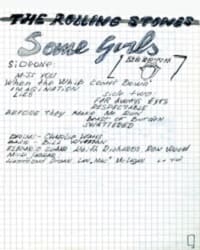 THE ROLLING STONES
Some Girls
SIDE ONE:
MISS YOU
WHEN THE WHIP COMES DOWN
IMAGINATION
LIES
SIDE TWO:
FAR AWAY EYES
RESPECTABLE
BEFORE THEY MAKE ME RUN
BEAST OF BURDEN
SHATTERED
DRUMS - CHARLIE WATTS
BASS - BILL WYMAN
KEITH RICHARDS RON WOOD
MICK JAGGER